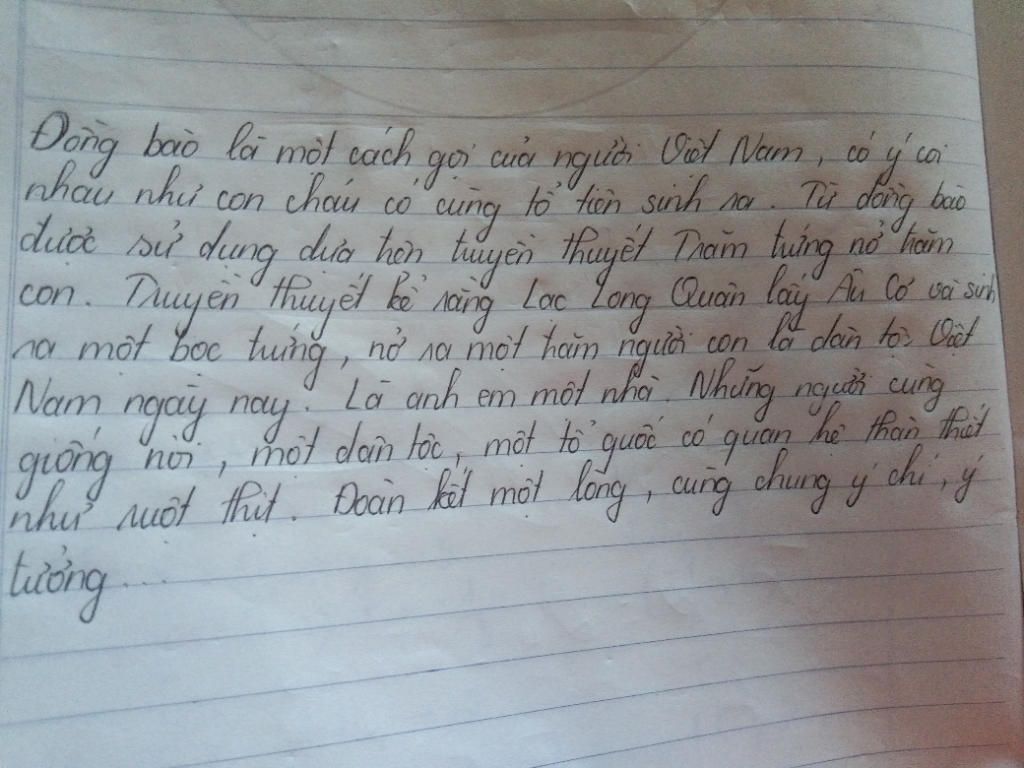 Đồng bào là một cách gọi của người Việt Nam, có ý coi
nhau như con cháu có cùng tổ tiên sinh ra. Từ đồng bào
được sử dụng dựa trên truyền thuyết Trăm trứng nở trăm
con. Truyền thuyết kể rằng Lạc Long Quân lấy Âu Cơ và sinh
ra một bọc trứng, nở ra một trăm người con là dân tộc Việt
Nam ngày nay. Là anh em một nhà. Những người cùng
giống nòi, một dân tộc, một tổ quốc có quan hệ thân thiết
như ruột thịt. Đoàn kết một lòng, cùng chung ý chí, ý
tưởng...